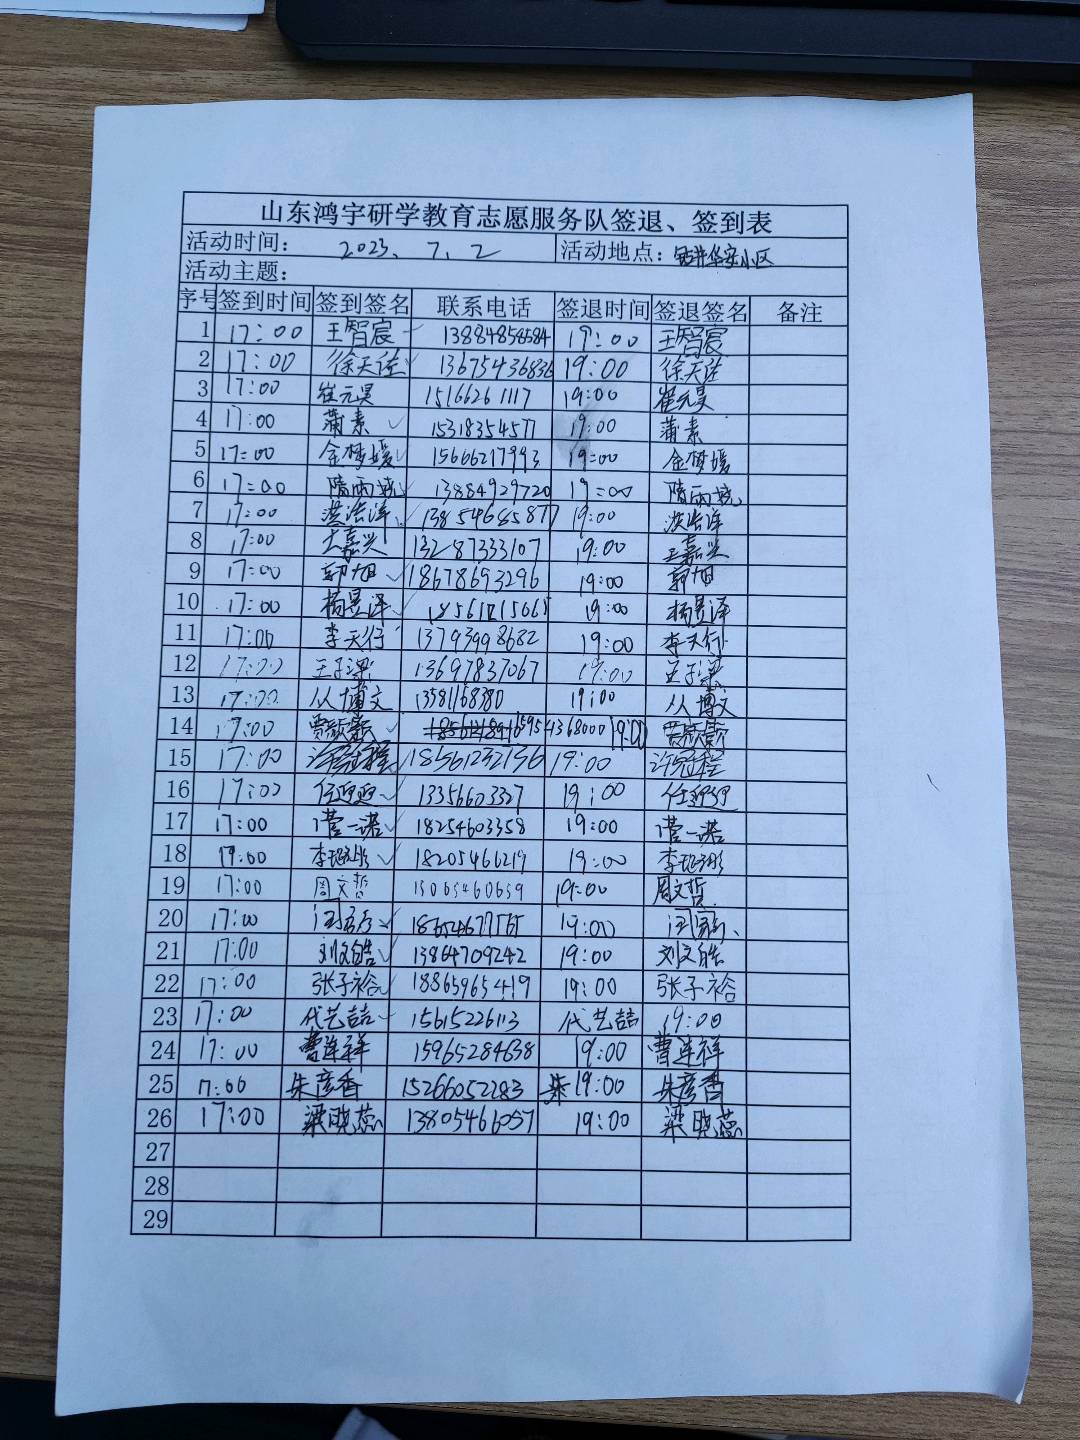 山东鸿宇研学教育志愿服务队签退、签到表
活动时间: 2023、7、2 活动地点: 钻井华安小区
活动主题:
序号 签到时间 签到签名 联系电话 签退时间 签退签名 备注
1 17:00 王智宸 13884858584 19:00 王智宸
2 17:00 徐天佳 13675436836 19:00 徐天佳
3 17:00 崔元昊 15166261117 19:00 崔元昊
4 17:00 蒲素 15318354577 19:00 蒲素
5 17:00 金梦媛 15666217993 19:00 金梦媛
6 17:00 隋雨 13884929720 19:00 隋雨
7 17:00 洪浩洋 13854685877 19:00 洪浩洋
8 17:00 王嘉兴 13287333107 19:00 王嘉兴
9 17:00 郭旭 18678693296 19:00 郭旭
10 17:00 杨昱泽 19:00 杨昱泽
11 17:00 李天行 13793998682 19:00 李天行
12 17:00 王子梁 13697837067 19:00 王子梁
13 17:00 从博文 13581168380 19:00 从博文
14 17:00 贾 15954368000 19:00 贾
15 17:00 许冠程 18561232736 19:00 许冠程
16 17:00 任迎迎 13356603327 19:00 任迎迎
17 17:00 曹一诺 18254603358 19:00 曹一诺
18 19:00 李 18205466219 19:00 李
19 17:00 周文哲 13065460659 19:00 周文哲
20 17:00 19:00
21 17:00 刘文皓 13864709242 19:00 刘文皓
22 17:00 张子裕 18865965419 19:00 张子裕
23 17:00 代艺喆 15615226113 代艺喆 19:00
24 17:00 曹连祥 15965284638 19:00 曹连祥
25 17:00 朱彦香 15266052283 朱 19:00 朱彦香
26 17:00 梁晓蕊 13805461057 19:00 梁晓蕊
27
28
29